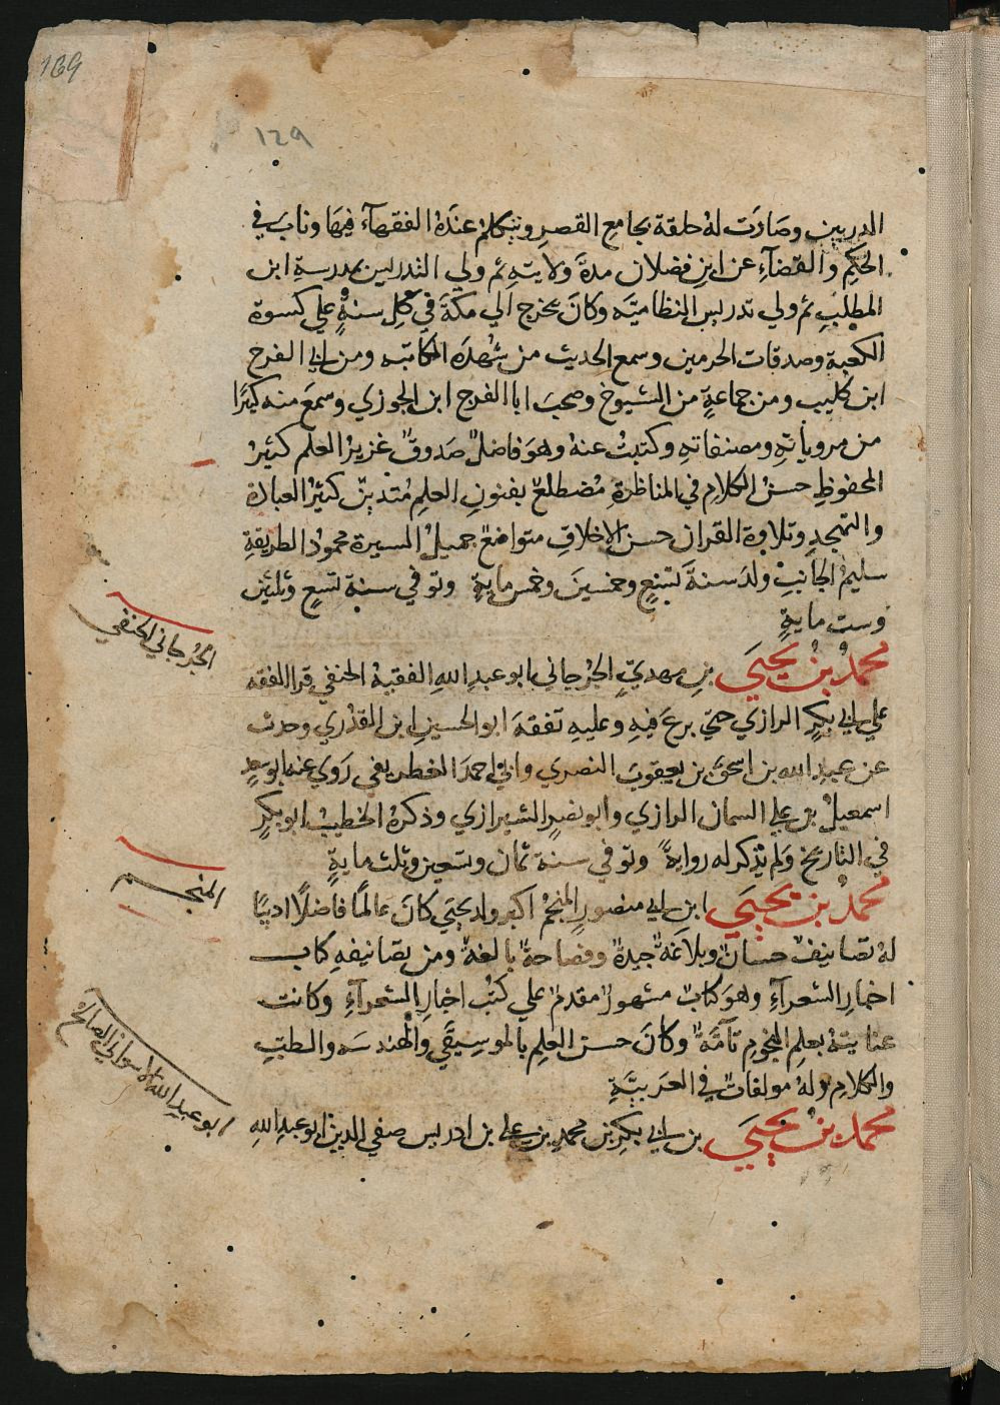 139
١٢٩
الدربين وصَارَت لهُ حلقة بجامع القصرِ ويتكلم عندَهُ الفقهآء فيهَا ونابَ في
الحُكمِ والقضآءِ عن ابنِ فضلان مدةَ ولايتهِ ثم ولي التدريس بمدرسةِ ابن
المطلبِ ثم ولي تدريس النظاميَّه وكانَ يخرج الي مكةَ في كلِ سنةٍ علي كسوة
الكعبةِ وصدقات الحرمين وسمع الحديث من شُهدَه الكاتبه ومن ابي الفرج
ابن كليب ومن جماعةٍ من الشيوخ وصحبَ ابا الفرج ابن الجوزي وسمعَ منه كثيرًا
من مروياتهِ ومصنفاتهِ وكتبتُ عنهُ وهوَ فاضلٌ صَدوقٌ غزيرُ العلم كثيرُ
المحفوظِ حسنُ الكلامِ في المناظرةِ مُضطلعٌ بفنونِ العلمِ مُتَديّن كثيرُ العبادة
والتهجدِ وتلاوة القران حسن الاخلاقِ متواضعٌ جميلُ السيرة محمودُ الطريقةِ
سليمُ الجانبِ ولدَ سنةَ تسعٍ وخمسينَ وخمس مايةٍ وتوفي سنة تسعٍ وثلثين
وست مايةٍ
محمدُ بنُ يحيَي بنِ مهديٍّ الجُرجاني ابو عبدِ اللهِ الفقيهُ الحنفي قرا الفقه
علي ابي بكرٍ الرازي حتي برعَ فيهِ وعليهِ تفقهَ ابو الحسينِ ابن القدُري وحدث
عن عبدِ الله بن اسحقَ بن يعقوبَ النصري وابي احمدَ الغطريفي رَوي عنه ابو سعدٍ
اسمعيلُ بن علي السمان الرازي وابو نصرٍ الشيرازي وذكرهُ الخطيبُ ابو بكرٍ
في التاريخ ولم يُذكر له روايةً وتوفي سنة ثمان وتسعين وثلث مايةٍ
محمدُ بن يحيَي ابن ابي منصورٍ المنجمُ اكبر ولد يحيَي كانَ عالمًا فاضلًا اديبًا
لهُ تصانيفٌ حسانٌ وبلاغةٌ جيدةٌ وفصاحةٌ بالغةٌ ومن تصانيفهِ كتاب
اخبارِ الشعرآءِ وهوَ كتابٌ مشهورٌ مقدمٌ علي كتُب اخبارِ الشعرآءِ وكانت
عنايتهُ بعلمِ النجومِ تآمَّةً وكانَ حسن العلمِ بالموسِيقَي والهندسَه والطبّ
والكلامِ ولهُ مولفاتٌ في العَربيَّةِ
محمد بن يحيَي بن ابي بكرٍ بن محمدٍ بن علي بن ادريس صفي الدين ابو عبدِ اللهِ
الجُرجاني الحنفي
المنجـــم
ابو عبدِ اللهِ الاسواني الصالحُ